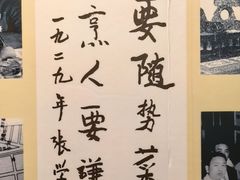 要随势菜
烹人要谦
一九二九年张学